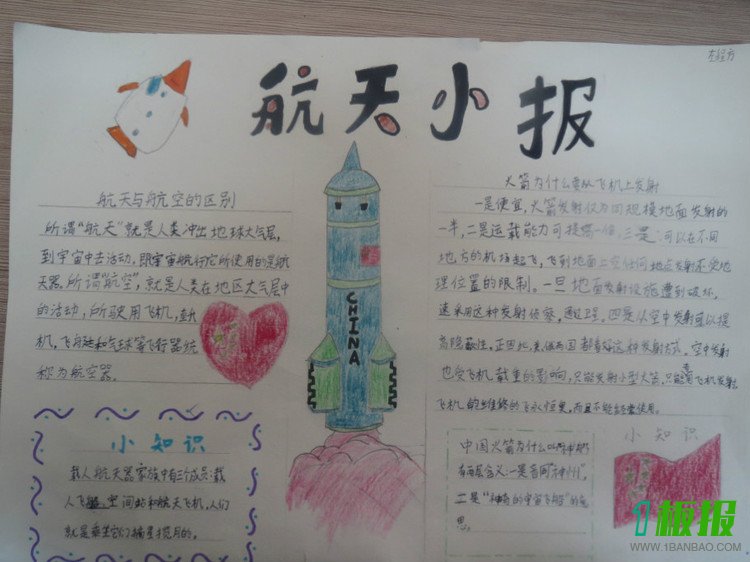 航天小报
航天与航空的区别
所谓“航天”就是人类冲出地球大气层,
到宇宙中去活动,即宇宙航行它所使用的是航
天器,所谓“航空”,就是人类在地区大气层中
的活动,所驶用飞机,
机,飞艇和气球等飞行器统
称为航空器。
小知识
载人航天器家族中有三个成员:载
人飞 空间站和航天飞机,人们
就是乘坐它们摘星揽月的。
CHINA
火箭为什么要从飞机上发射
一是便宜,火箭发射仅为同规模地面发射的
一半,二是运载能力可提高一倍,三是:可以在不同
地方的机场起飞,飞到地面上空任何地点发射不受地
理位置的限制。一旦地面发射设施遭到破坏,
速采用这种发射侦察,通 卫星。四是从空中发射可以提
高隐蔽性,正因此,美俄两国都看好这种发射方式。空中发射
也受飞机载重的影响,只能发射小型火箭,只能 飞机发射,
飞机的维修的飞 ,而且不能经常使用。
中国火箭为什么叫神舟
有两层含义:一是音同“神州”,
二是“神奇的宇宙飞船”的意
思。
小知识
1板报
WWW.1BANBAO.COM